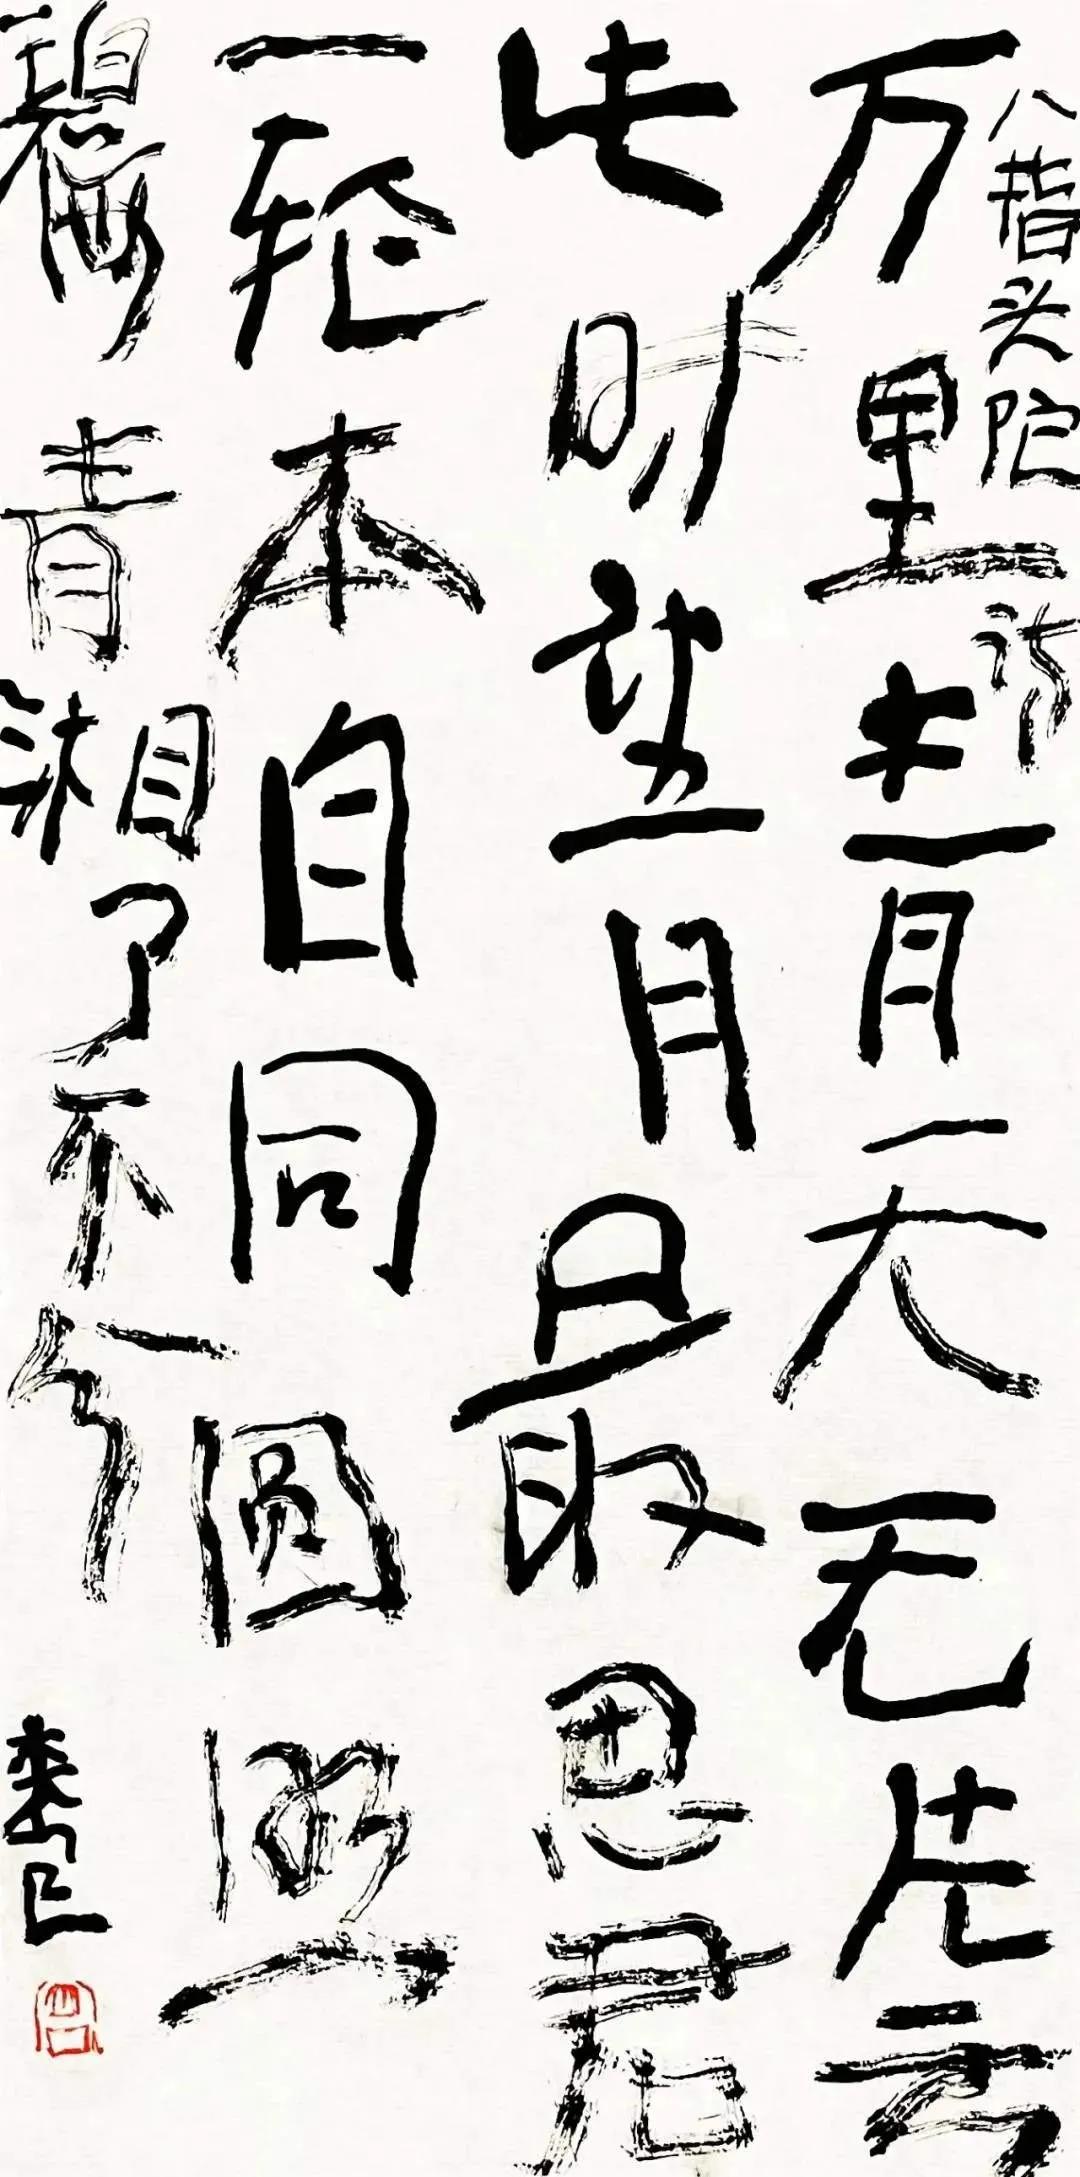 八指头陀诗
万里青天无片云
此时望月最思君
一轮本自同圆照
碧海青湘了不分